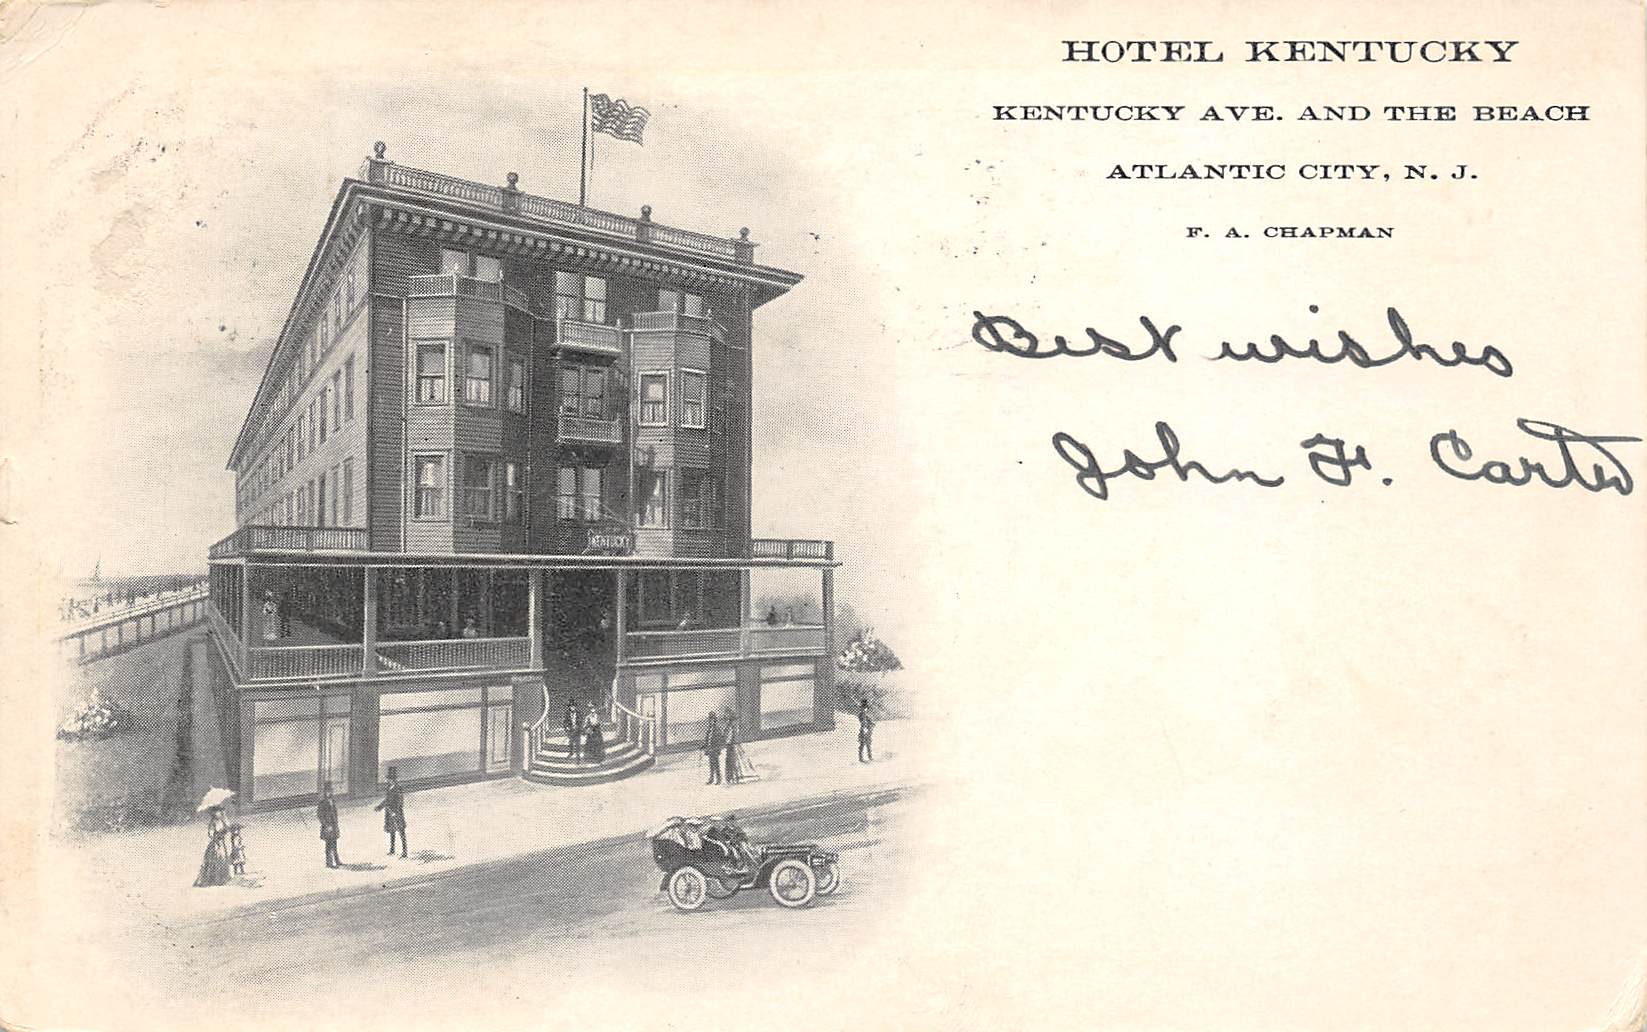 HOTEL KENTUCKY
KENTUCKY AVE. AND THE BEACH
ATLANTIC CITY, N. J.
F. A. CHAPMAN
Best wishes
John F. Carter
KENTUCKY